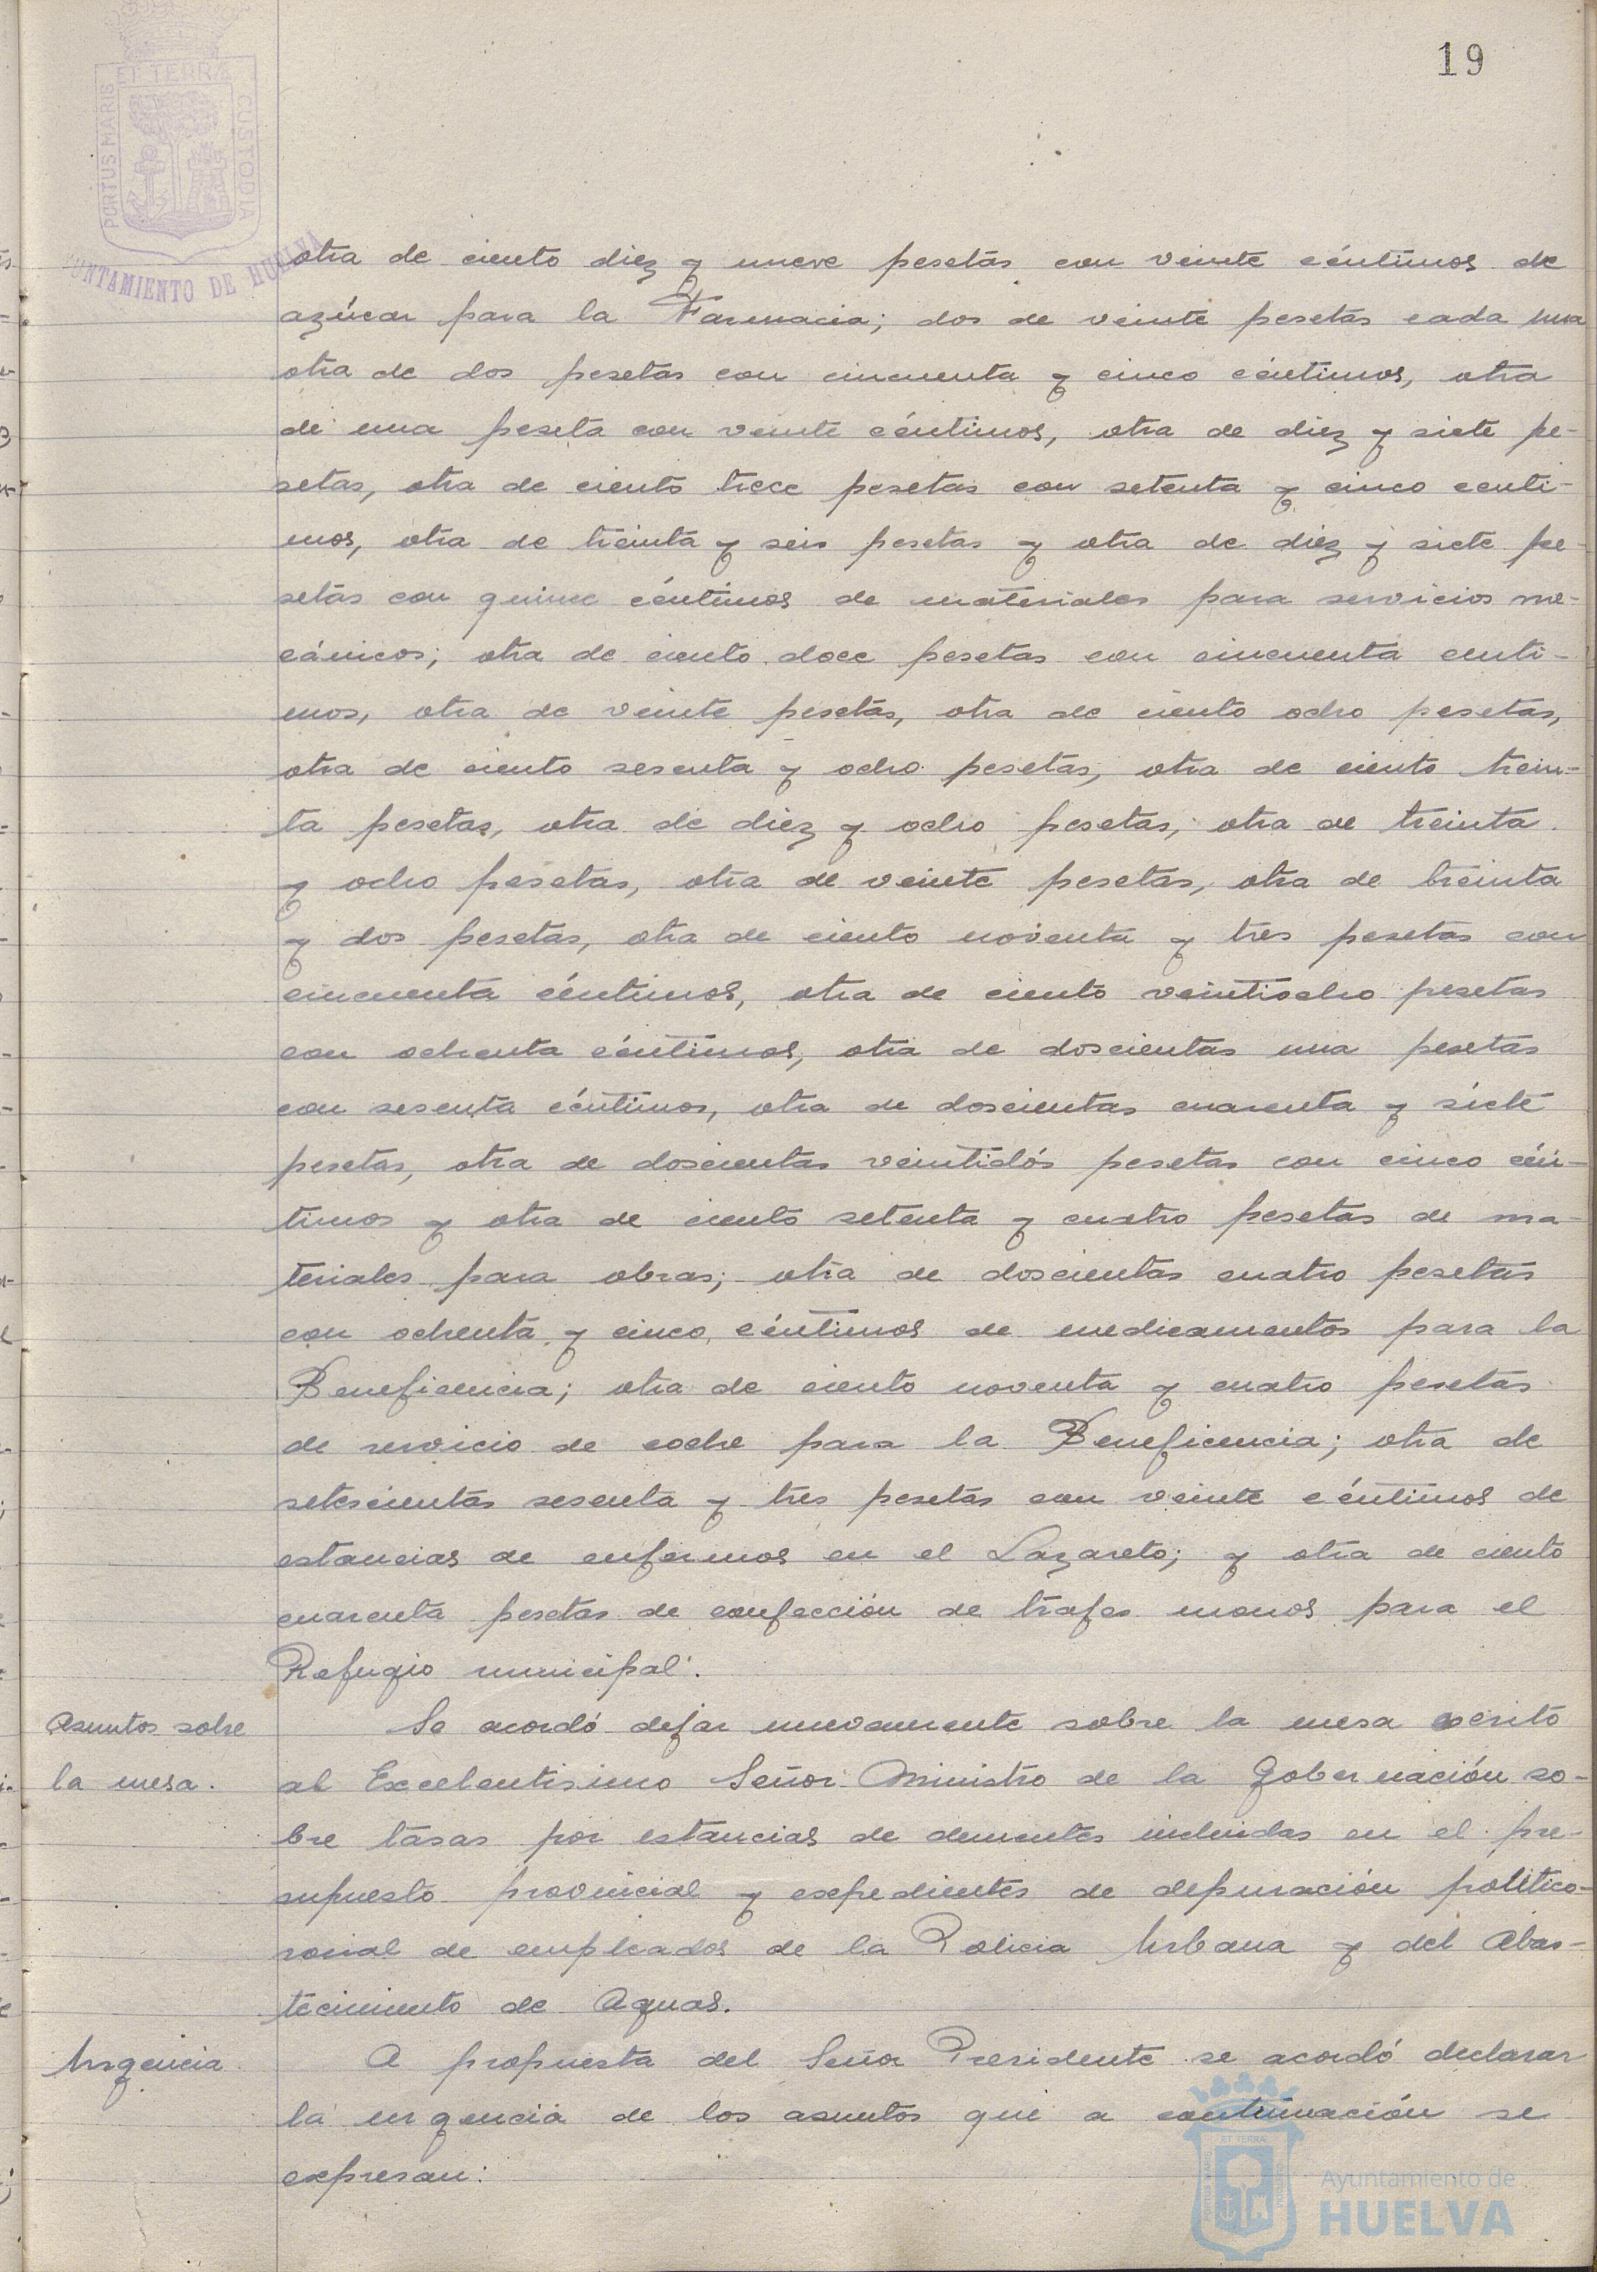 19
ET TERRÆ
PORTUS MARIS
CUSTODIA
AYUNTAMIENTO DE HUELVA
otra de ciento diez y nueve pesetas con veinte céntimos de
azúcar para la Farmacia; dos de veinte pesetas cada una
otra de dos pesetas con cincuenta y cinco céntimos, otra
de una peseta con veinte céntimos, otra de diez y siete pe-
setas, otra de ciento trece pesetas con setenta y cinco centi-
mos, otra de treinta y seis pesetas y otra de diez y siete pe-
setas con quince céntimos de materiales para servicios me-
cánicos; otra de ciento doce pesetas con cincuenta centi-
mos, otra de veinte pesetas, otra de ciento ocho pesetas,
otra de ciento sesenta y ocho pesetas, otra de ciento trein-
ta pesetas, otra de diez y ocho pesetas, otra de treinta
y ocho pesetas, otra de veinte pesetas, otra de treinta
y dos pesetas, otra de ciento noventa y tres pesetas con
cincuenta céntimos, otra de ciento veintiocho pesetas
con ochenta céntimos, otra de doscientas una pesetas
con sesenta céntimos, otra de doscientas cuarenta y siete
pesetas, otra de doscientas veintidós pesetas con cinco cén-
timos y otra de ciento setenta y cuatro pesetas de ma-
teriales para obras; otra de doscientas cuatro pesetas
con ochenta y cinco céntimos de medicamentos para la
Beneficencia; otra de ciento noventa y cuatro pesetas
de servicio de coche para la Beneficencia; otra de
setescientas sesenta y tres pesetas con veinte céntimos de
estancias de enfermos en el Lazareto; y otra de ciento
cuarenta pesetas de confección de trajes monos para el
Refugio municipal.
Asuntos sobre
la mesa.
Se acordó dejar nuevamente sobre la mesa escrito
al Excelentisimo Señor Ministro de la Gobernación so-
bre tasas por estancias de dementes incluidas en el pre-
supuesto provincial y expedientes de depuración político-
social de empleados de la Policia Urbana y del Abas-
tecimiento de Aguas.
Urgencia
A propuesta del Señor Presidente se acordó declarar
la urgencia de los asuntos que a continuación se
expresan:
Ayuntamiento de
HUELVA